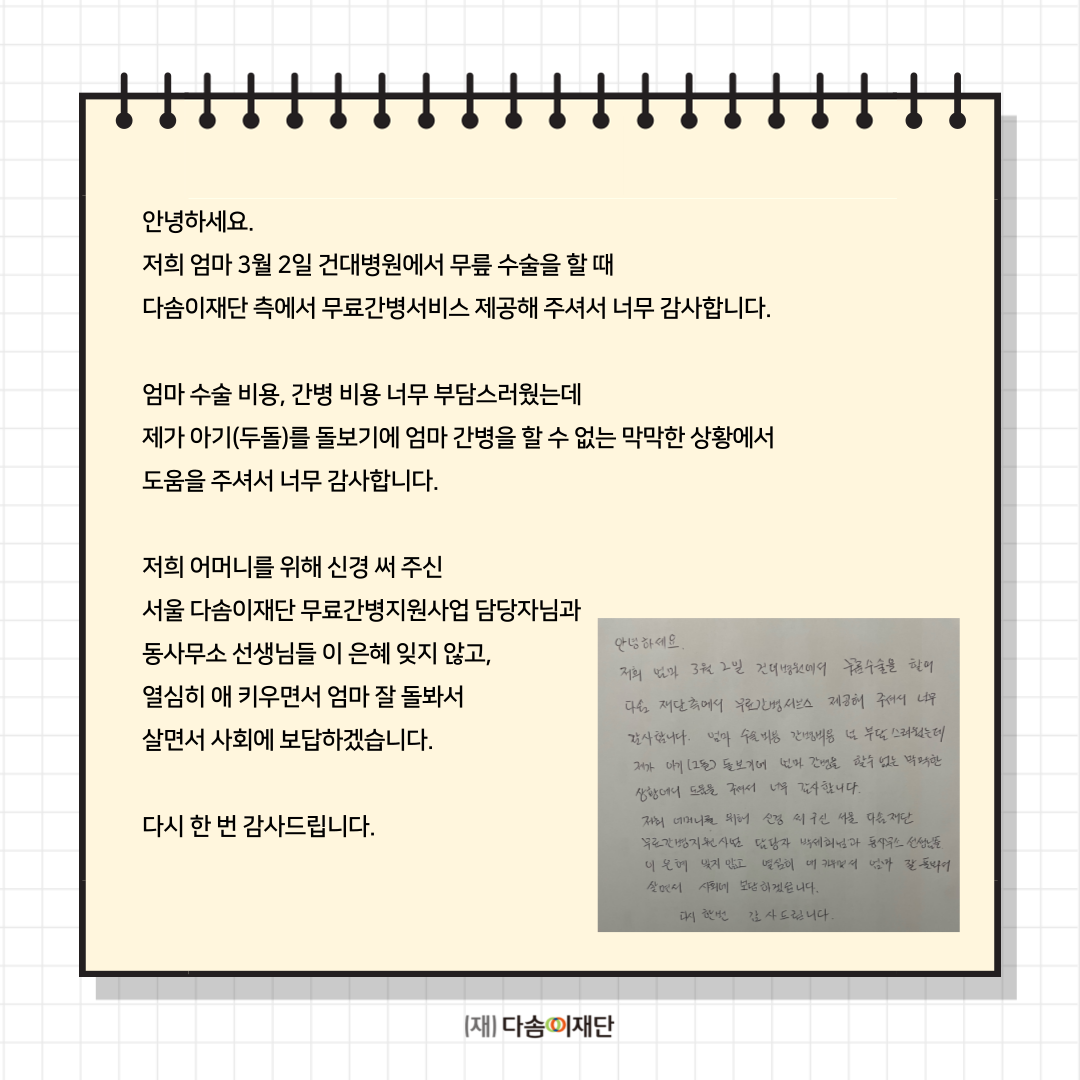 안녕하세요.
저희 엄마 3월 2일 건대병원에서 무릎 수술을 할 때
다솜이재단 측에서 무료간병서비스 제공해 주셔서 너무 감사합니다.
엄마 수술 비용, 간병 비용 너무 부담스러웠는데
제가 아기(두돌)를 돌보기에 엄마 간병을 할 수 없는 막막한 상황에서
도움을 주셔서 너무 감사합니다.
저희 어머니를 위해 신경 써 주신
서울 다솜이재단 무료간병지원사업 담당자님과
동사무소 선생님들 이 은혜 잊지 않고,
열심히 애 키우면서 엄마 잘 돌봐서
살면서 사회에 보답하겠습니다.
다시 한 번 감사드립니다.
안녕하세요.
저희 엄마 3월 2일 건대병원에서 수술을 할때
다솜 재단측에서 무료간병서비스 제공해 주셔서 너무
감사합니다. 엄마 수술비용 간병비용 넘 부담스러웠는데
제가 아기(2돌) 돌보기에 엄마 간병을 할수 없는 막막한
상황에서 도움을 주셔서 너무 감사합니다.
저희 어머니를 위해 신경 써 주신 서울 다솜재단
무료간병지원사업 담당자 님과 동사무소 선생님들
이 은혜 잊지 않고 열심히 애 키우면서 엄마 잘 돌봐서
살면서 사회에 보답하겠습니다.
다시 한번 감사드립니다.
(재) 다솜이재단